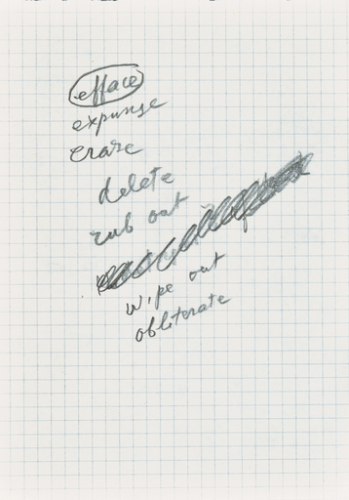 efface
expunge
erase
delete
rub out
wipe out
obliterate